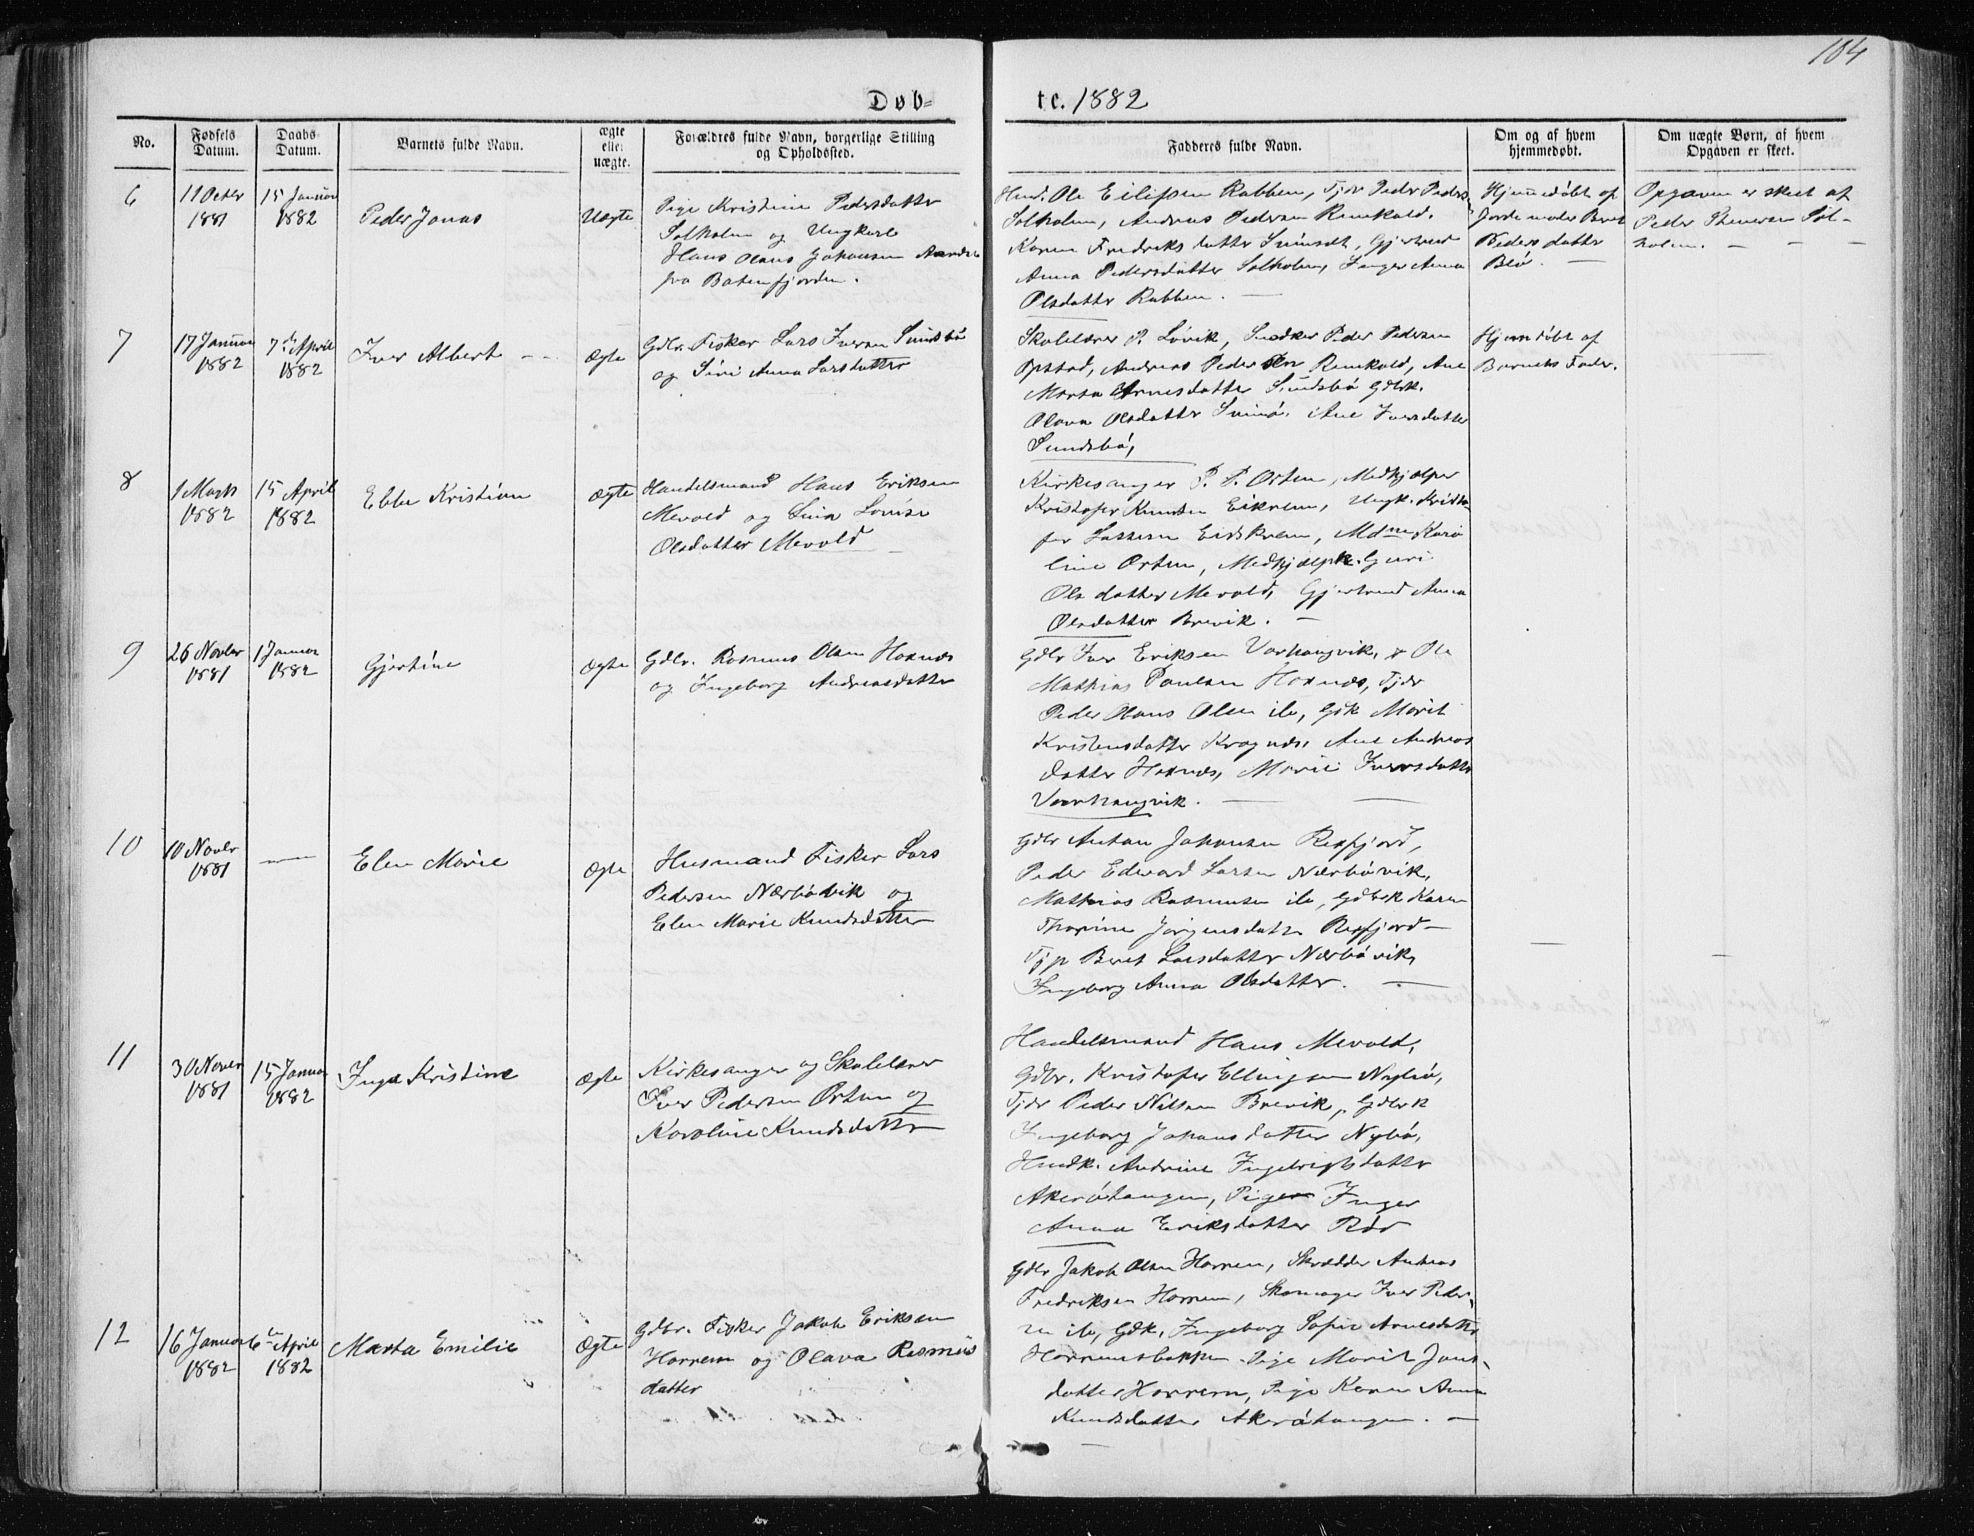 104
Døb=
te. 1882
No.
Fødsels Datum.
Daabs Datum.
Barnets fulde Navn.
ægte eller uægte.
Forældres fulde Navn, borgerlige Stilling og Opholdssted.
Fadderes fulde Navn.
Om og af hvem hjemmedøbt.
Om uægte Børn, af hvem Opgaven er skeet.
6
11 Octbr 1881
15 Januar 1882
Peder Jonas
Uægte
Pige Kristine Pedersdatter
Solholm og Ungkarl
Hans Olaus Johansen
fra Batenfjorden.
Husm. Ole Eilifsen Rabben, Tjdr Peder Peders
Solholm, Andreas Pedersen Renekald.
Karen Fredriksdatter, Gjertrud
Anna Pedersdatter Solholm, Inger Anna
Olsdatter Rabben. —
Hjemmedøbt af
Jordemoder Beret
Pedersdatter
Opgaven er skeet af
Peder Stenersen Sol-
holm. — —
7
17 Januar 1882
7de April 1882
Iver Albert — -
Ægte
Gdbr. Fisker Lars Iversen Sundsbø
og Siri Anna Larsdatter
Skolelærer P. Løvik, Snedker Peder Pedersen
Opstad, Andreas Pedersen Renekald, Ane
Marta Arnesdatter Sundsbø Gdbrk.
Olava Olsdatter, Ane Iversdatter
Sundsbø,
Hjemdøbt af
Barnets Fader.
8
1 Marts 1882
15 April 1882
Ebbe Kristian
Ægte
Handelsmand Hans Eriksen
Mevold og Lina Lovise
Olsdatter Mevold
Kirkesanger P. P. Orten, Medhjælper
Kristofer Knudsen Eikrem, Ungk. Kristo-
fer Larsen Eidskrem, Mdme Karo
line Orten, Medhjælprk. Guri
Olsdatter Mevold, Gjertrud Anna
Olsdatter Brevik. —
9
26 Novbr 1881
1 Januar 1882
Gjertine
Ægte
Gdbr. Rasmus Olsen Hoxnæs
og Ingeborg Andreasdatter
Gdbr Iver Eriksen Varhaugvik, Ole
Mathias Paulsen Hoxnæs, Tjdr
Peder Olaus Olsen ib, Gdk Marit
Kristensdatter Kragnæs, Ane Andreas
datter Hoxnæs, Marie Iversdatter
Varhaugvik. — —
10
10 Novbr 1881
—
Elen Marie
Ægte
Husmand Fisker Lars
Pedersen Nærbøvik og
Elen Marie Knudsdatter
Gdbr Anton Johansen Rexfjord,
Peder Edvard Larsen Nærbøvik,
Mathias Rasmussen ib, Gdbrk Karen
Thorine Jørgensdatter Rexfjord
Tjp Beret Larsdatter Nærbøvik,
Ingeborg Anna Olsdatter. —
—
—
11
30 Novbr 1881
15 Januar 1882
Inga Kristine
Ægte
Kirkesanger og Skolelærer
Iver Pedersen Orten og
Karoline Knudsdatter
Handelsmand Hans Mevold,
Gdbr. Kristofer Ellingsen Nybø,
Tjdr Peder Nilsen Brevik, Gdbrk
Ingeborg Johansdatter Nybø,
Husmk. Andrine Ingebrigtsdatter
Akerøhaugen, Pigen Inger
Anna Eriksdatter Rød
12
16 Januar 1882
6te April 1882
Marta Emilie
Ægte
Gdbr. Fisker Jakob Eriksen
Harrem og Olava Rasmus
datter
Gdbr Jakob Olsen Harrem, Skrædder Andreas
Fredriksen Harrem, Skomager Iver Peder-
sen ib, Gdk, Ingeborg Sofie Arnesdatter
Harremsbakken. Pige Marit Jons-
datter Harrem, Pige Karen Anna
Knudsdatter Akerøhaugen. —